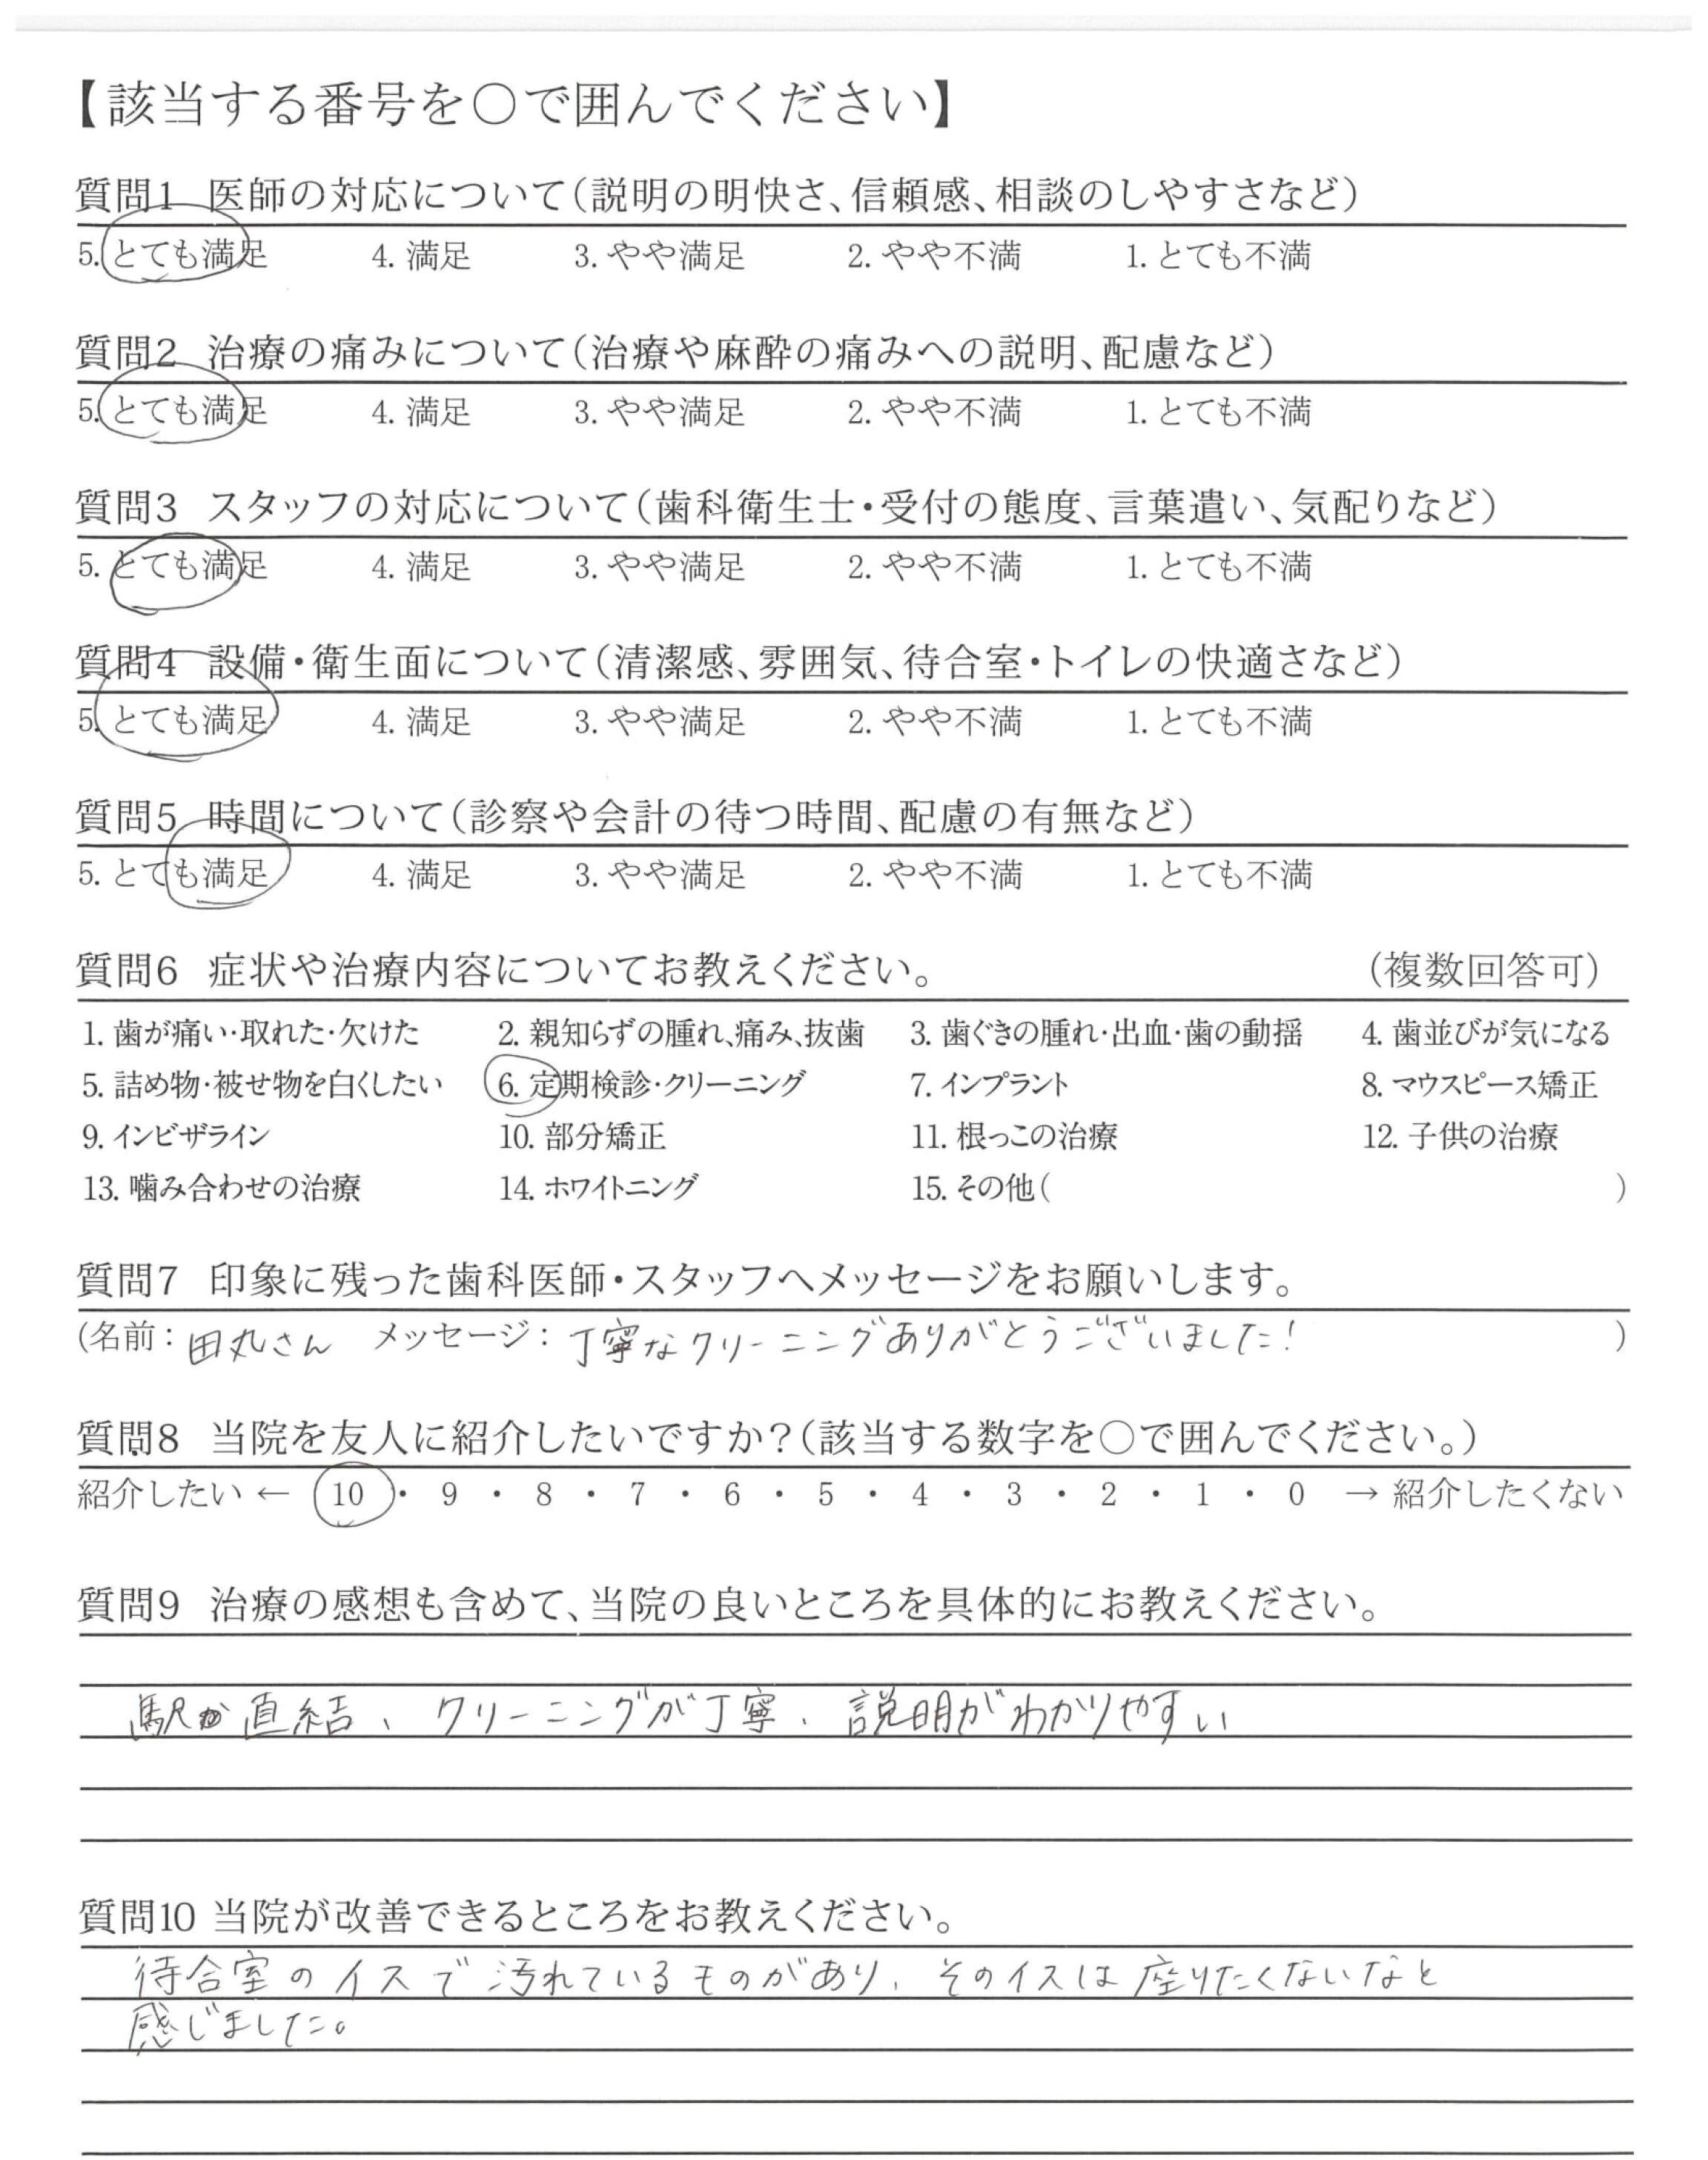 【該当する番号を○で囲んでください】
質問1 医師の対応について(説明の明快さ、信頼感、相談のしやすさなど)
5. とても満足 4. 満足 3. やや満足 2. やや不満 1. とても不満
質問2 治療の痛みについて(治療や麻酔の痛みへの説明、配慮など)
5. とても満足 4. 満足 3. やや満足 2. やや不満 1. とても不満
質問3 スタッフの対応について(歯科衛生士・受付の態度、言葉遣い、気配りなど)
5. とても満足 4. 満足 3. やや満足 2. やや不満 1. とても不満
質問4 設備・衛生面について(清潔感、雰囲気、待合室・トイレの快適さなど)
5. とても満足 4. 満足 3. やや満足 2. やや不満 1. とても不満
質問5 時間について(診察や会計の待つ時間、配慮の有無など)
5. とても満足 4. 満足 3. やや満足 2. やや不満 1. とても不満
質問6 症状や治療内容についてお教えください。 (複数回答可)
1. 歯が痛い・取れた・欠けた 2. 親知らずの腫れ、痛み、抜歯 3. 歯ぐきの腫れ・出血・歯の動揺 4. 歯並びが気になる
5. 詰め物・被せ物を白くしたい 6. 定期検診・クリーニング 7. インプラント 8. マウスピース矯正
9. インビザライン 10. 部分矯正 11. 根っこの治療 12. 子供の治療
13. 噛み合わせの治療 14. ホワイトニング 15. その他( )
質問7 印象に残った歯科医師・スタッフへメッセージをお願いします。
(名前: 田丸さん メッセージ: 丁寧なクリーニングありがとうございました! )
質問8 当院を友人に紹介したいですか?(該当する数字を○で囲んでください。)
紹介したい ← 10 ・ 9 ・ 8 ・ 7 ・ 6 ・ 5 ・ 4 ・ 3 ・ 2 ・ 1 ・ 0 → 紹介したくない
質問9 治療の感想も含めて、当院の良いところを具体的にお教えください。
駅直結、クリーニングが丁寧、説明がわかりやすい
質問10 当院が改善できるところをお教えください。
待合室のイスで汚れているものがあり、そのイスは座りたくないなと
感じました。